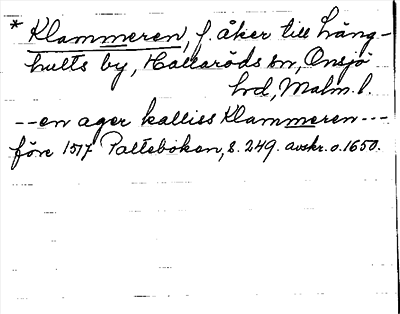 * Klammeren, f. åker till Häng-
hults by, Hallaröds sn, Onsjö
hd, Malm. l.
-- en ager kalliss Klammeren ---
före 1517 Palteboken, s. 249. avskr. o. 1650.